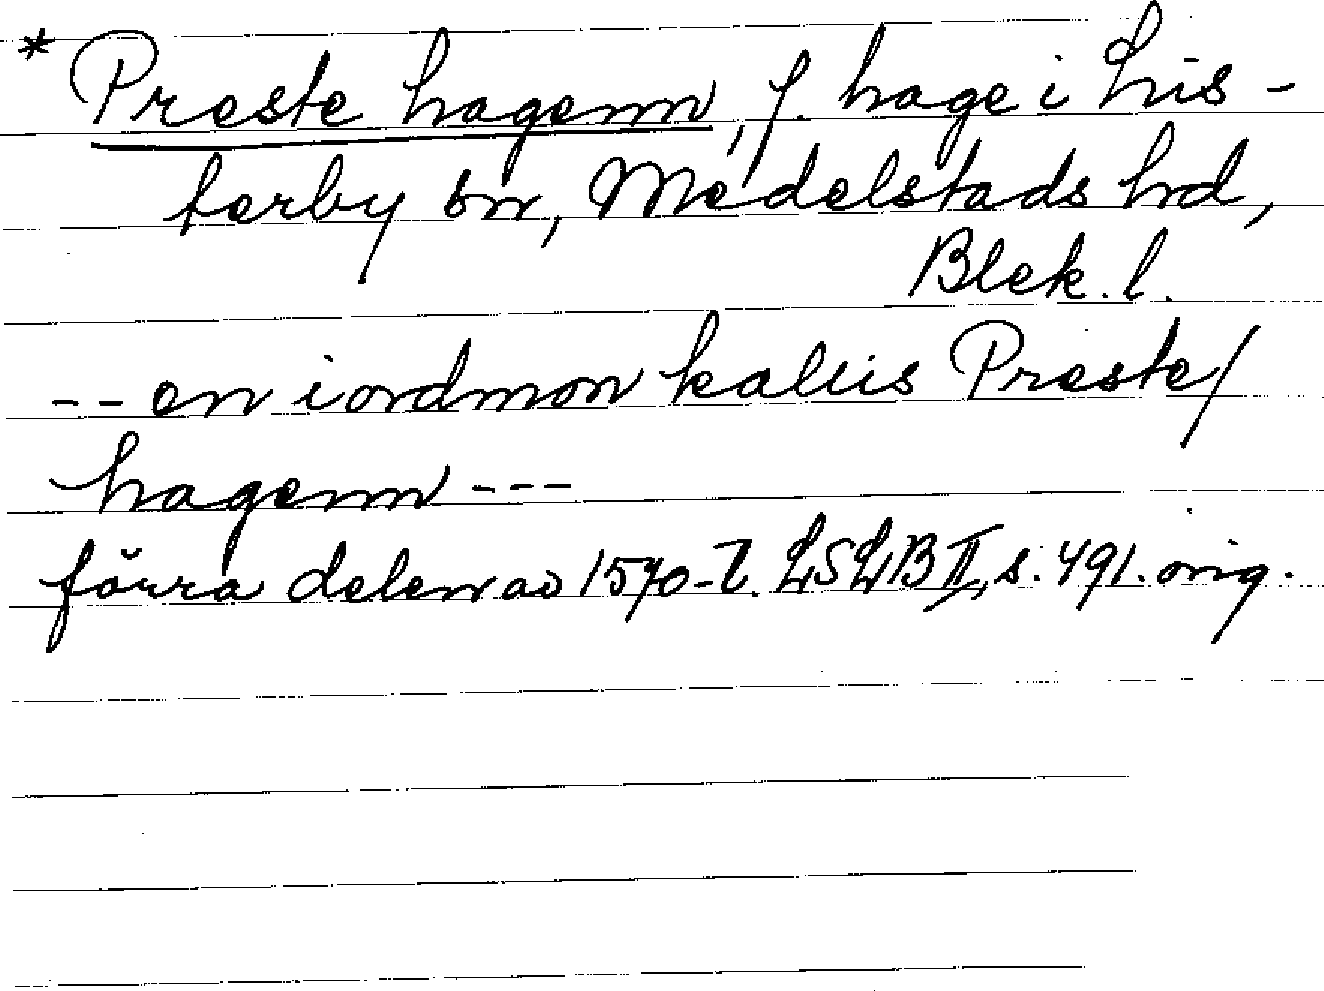 * Preste hagenn, f. hage i Lis-
terby sn, Medelstads hd,
Blek. l.
-- en iordmon kallis Preste/
hagenn ---
förra delen av 1570-t. LSLB II, s. 491. orig.